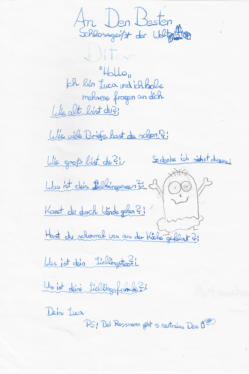 An Den Besten
Schlossgeist der Welt
"Hallo"
Ich bin Luca und ich habe
mehrere fragen an dich
Wie alt bist du?:
Wie viele Briefe hast du schon?:
Wie groß bist du?:
So denke ich siehst du aus:
Was ist dein Lieblingsessen?:
Kanst du durch Wände gehen?:
Hast du schonmal was aus der Küche geklaut?:
Was ist dein Lieblingstier?:
Was ist deine Lieblingsfarbe?:
Dein Luca
PS: Bei Rossmann gibt s